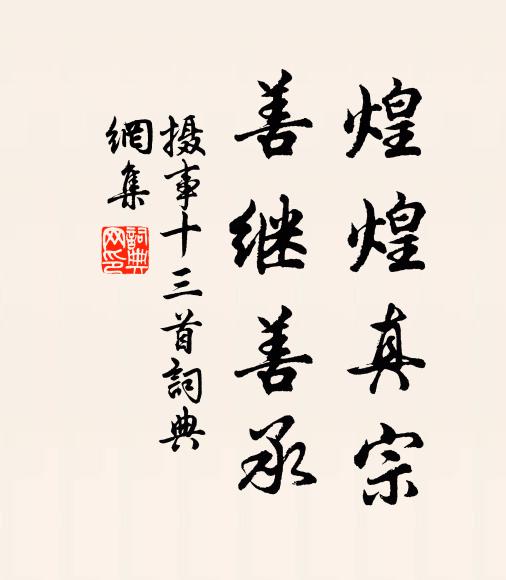 煌煌真宗
善继善承
摄事十三首詞典
網集
詞典
网印